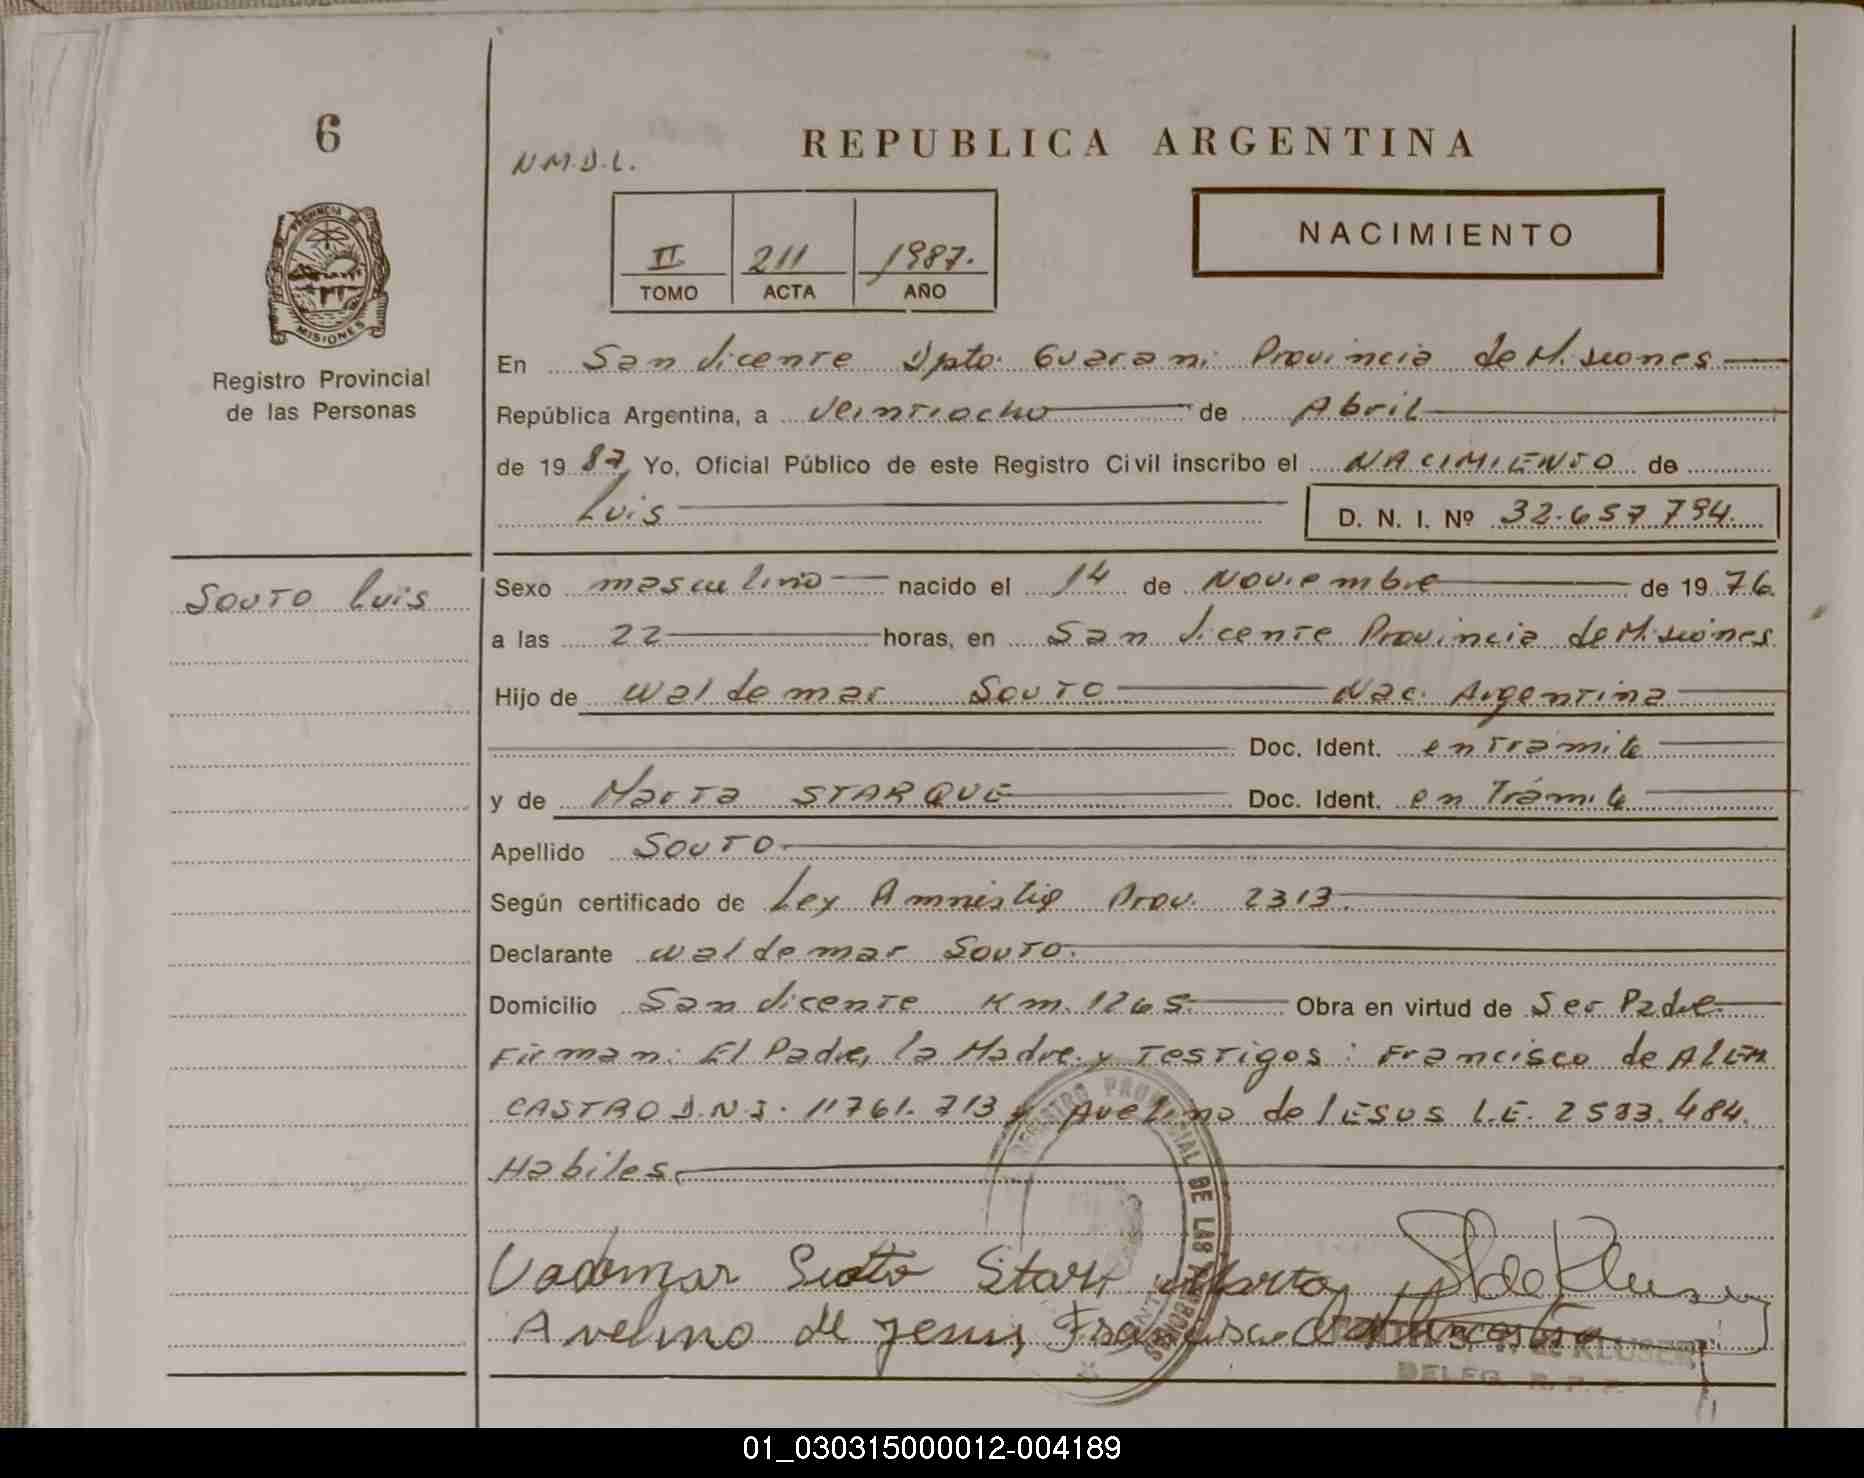 6
REPUBLICA ARGENTINA
N.M.D.L.
NACIMIENTO
II 211 1987.
TOMO ACTA AÑO
PROVINCIA DE
MISIONES
Registro Provincial
de las Personas
En San Vicente Dpto. Guarani Provincia de Misiones
República Argentina, a Veintiocho de Abril
de 19 87 Yo, Oficial Público de este Registro Civil inscribo el NACIMIENTO de
Luis D. N. I. Nº 32.657.794.
Souto Luis
Sexo masculino nacido el 14 de Noviembre de 19 76.
a las 22 horas, en San Vicente Provincia de Misiones
Hijo de Waldemar Souto Nac. Argentina
Doc. Ident. en Tramite
y de Marta STARQUE Doc. Ident. en Trámite
Apellido Souto
Según certificado de Ley Amnistia Prov. 2313.
Declarante Waldemar Souto.
Domicilio San Vicente Km. 1265 Obra en virtud de Ser Padre
Firman: El Padre, la Madre y Testigos: Francisco de ALEM
CASTRO D.N.I. 11761.713 y Avelino de JESUS L.E. 2583.484.
Habiles.
REGISTRO PROVINCIAL DE LAS PERSONAS
Souto Stark Marta
Avelino de Jesus Francisco
de KLUSER
DELEG. R. P. P.
01_030315000012-004189